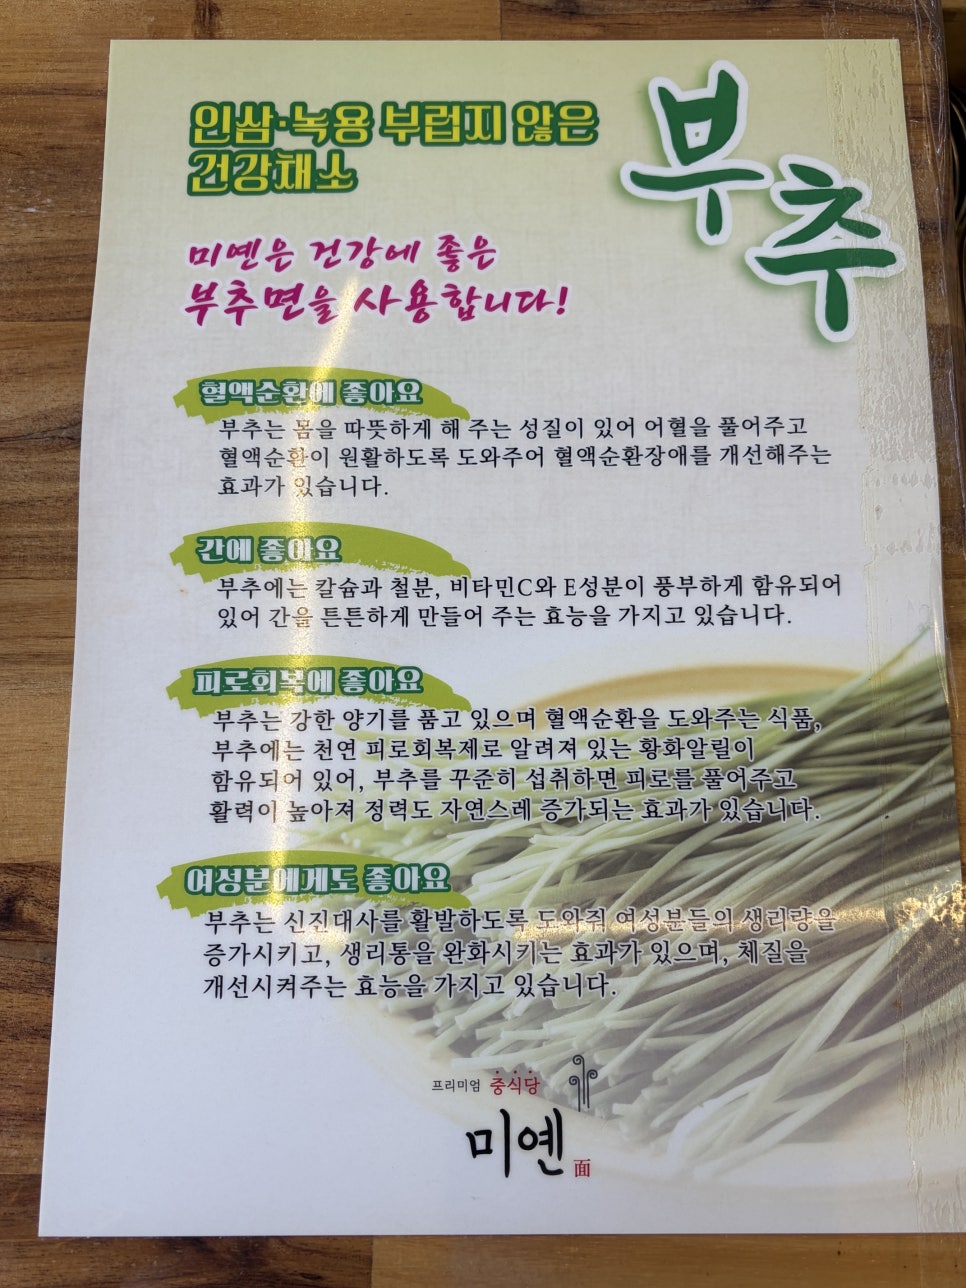 인삼·녹용 부럽지 않은
건강채소
부추
미옌은 건강에 좋은
부추면을 사용합니다!
혈액순환에 좋아요
부추는 몸을 따뜻하게 해 주는 성질이 있어 어혈을 풀어주고
혈액순환이 원활하도록 도와주어 혈액순환장애를 개선해주는
효과가 있습니다.
간에 좋아요
부추에는 칼슘과 철분, 비타민C와 E성분이 풍부하게 함유되어
있어 간을 튼튼하게 만들어 주는 효능을 가지고 있습니다.
피로회복에 좋아요
부추는 강한 양기를 품고 있으며 혈액순환을 도와주는 식품,
부추에는 천연 피로회복제로 알려져 있는 황화알릴이
함유되어 있어, 부추를 꾸준히 섭취하면 피로를 풀어주고
활력이 높아져 정력도 자연스레 증가되는 효과가 있습니다.
여성분에게도 좋아요
부추는 신진대사를 활발하도록 도와줘 여성분들의 생리량을
증가시키고, 생리통을 완화시키는 효과가 있으며, 체질을
개선시켜주는 효능을 가지고 있습니다.
프리미엄 중식당
미옌 面